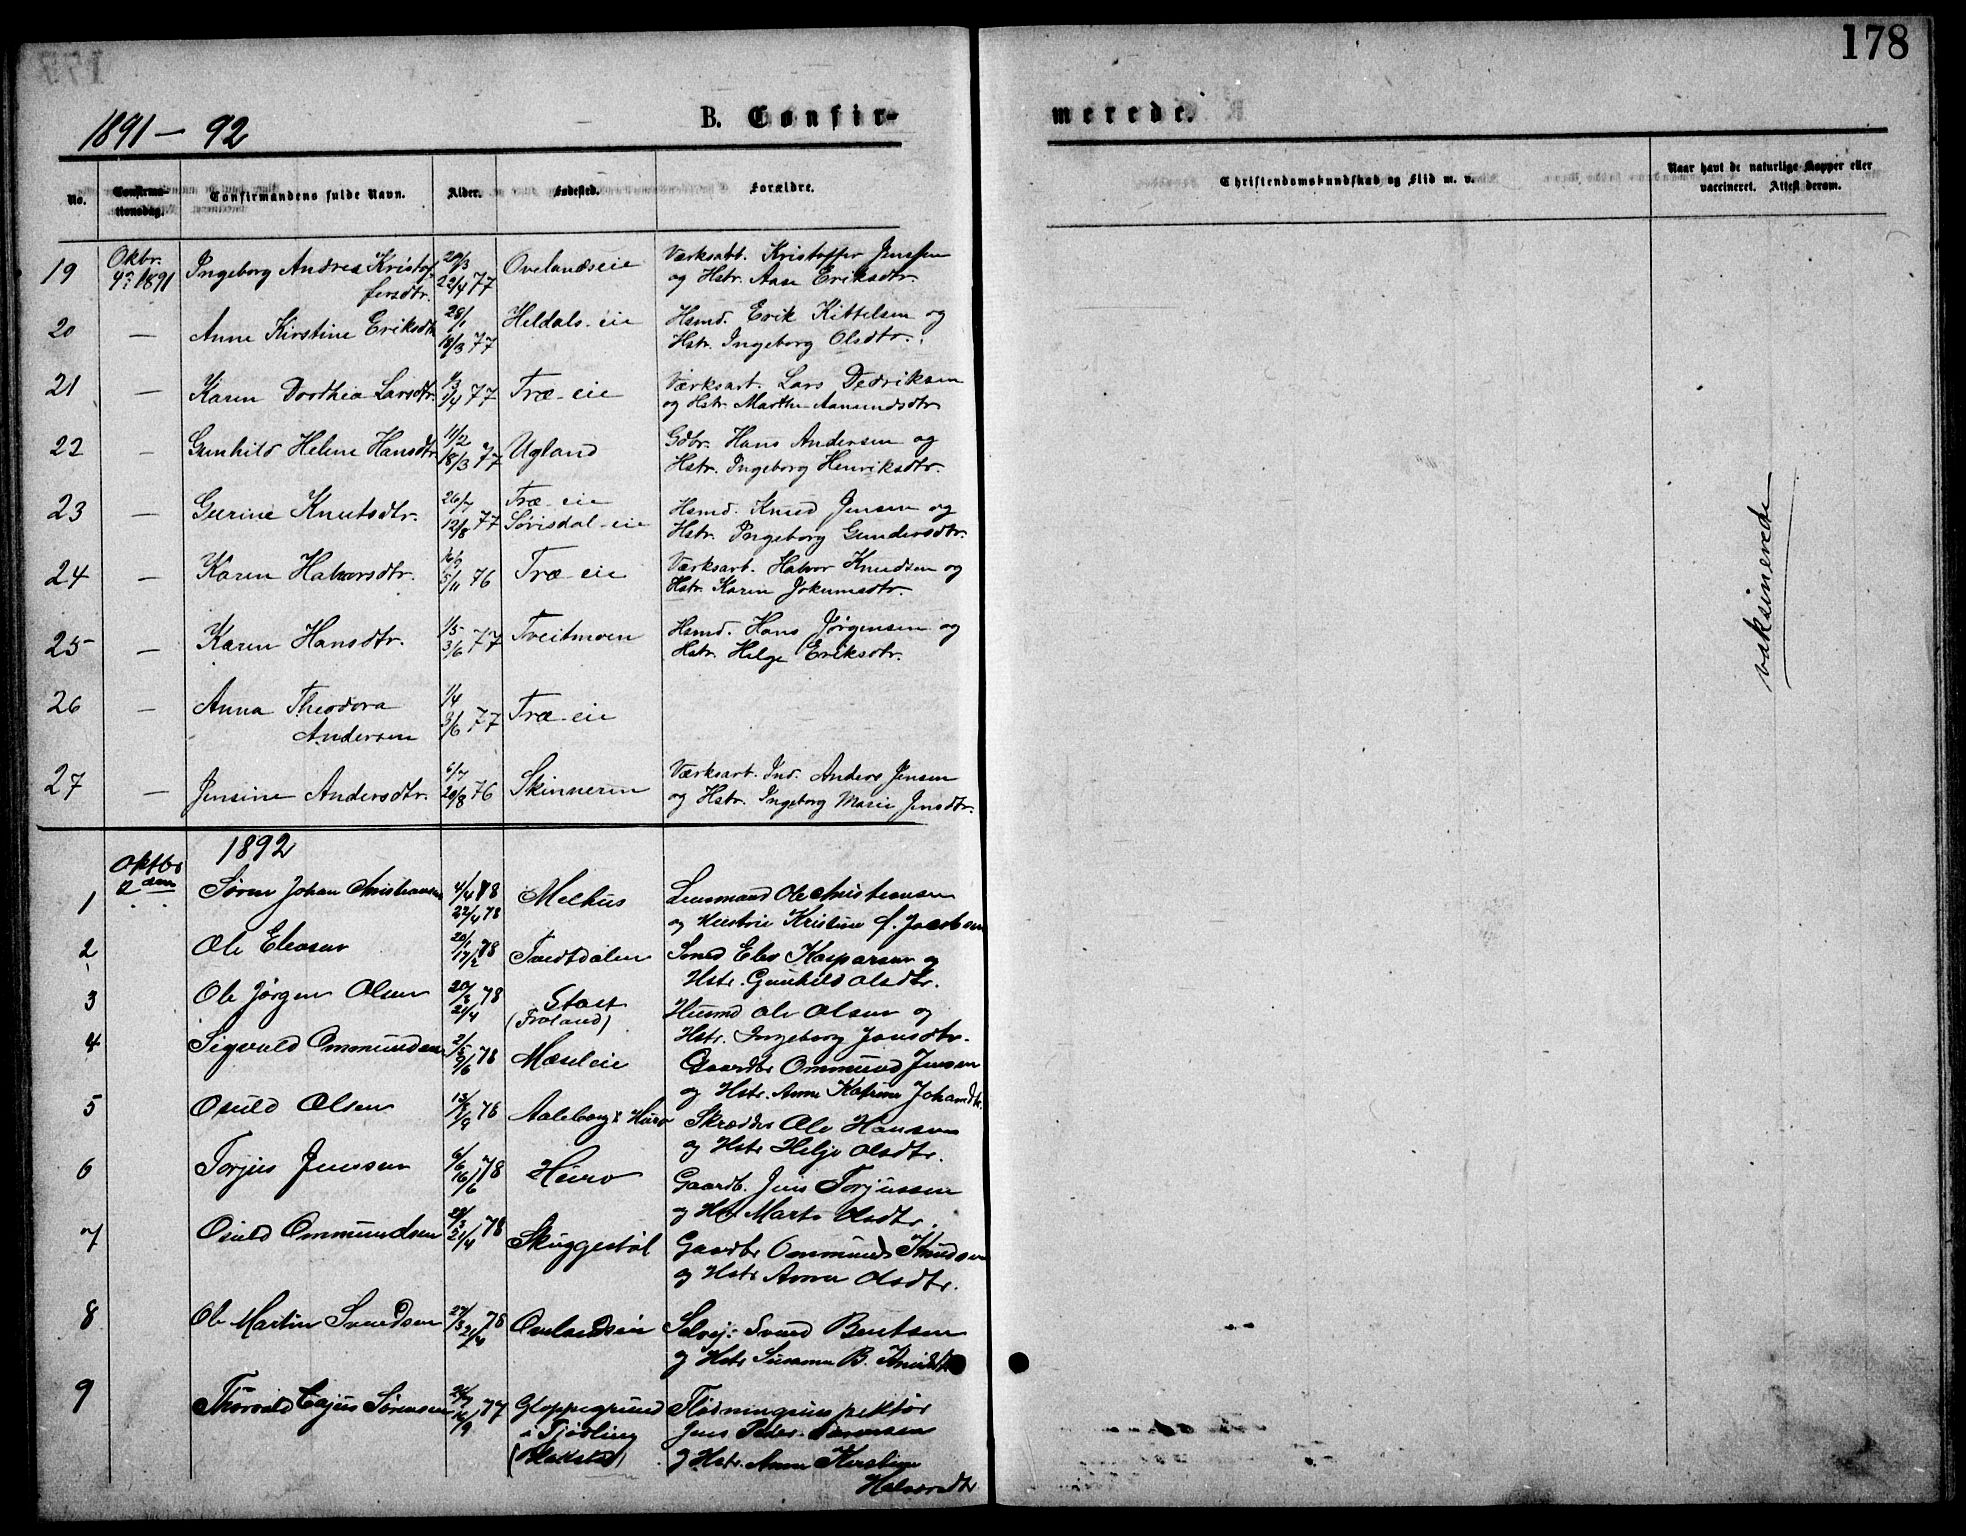 178
1891 – 92
B. Confir-
merede.
No.
Confirma-
tionsdag.
Confirmandens fulde Navn.
Alder.
Fødested.
Forældre.
Christendomskundskab og Flid m. v.
Naar havt de naturlige Kopper eller
vaccineret. Attest derom.
19 Oktbr. 4de 1891 Ingeborg Andrea Kristof- 22/4 77 Ovelandseie
fersdtr.
Kristoffer Jenssen
og Hstr. Aase Eriksdtr.
20 — Anne Kirstine Eriksdtr. 28/1 18/3 77 Heldals-eie Hsmd. Erik Kittelsen og
Hstr. Ingeborg Olsdtr.
21 — Karen Dorthea Larsdtr. 1/4 77 Træ-eie Værksarb. Lars Dedriksen
og Hstr. Marthe Aanundsdtr
22 — Gunhild Helene Hansdtr. 11/2 18/3 77 Ugland Gdbr. Hans Andersen og
Hstr. Ingeborg Henriksdtr.
23 — Gurine Knutsdtr. 26/7 12/8 77 Træ-eie
Sørisdal-eie
Hsmd. Knud Jensen og
Hstr. Ingeborg Gundersdtr.
24 — Karen Halvorsdtr. 5/11 76 Træ-eie Værksarb. Halvor Knudsen og
Hstr. Karen Jokumsdtr.
25 — Karen Hansdtr. 1/5 3/6 77 Tveitmoen Hsmd. Hans Jørgensen og
Hstr. Helge Eriksdtr.
26 — Anna Theodora 1/4 3/6 77 Træ-eie
Andersen
27 — Jensine Andersdtr. 6/7 20/8 76 Skinneren Værksarb. Ind. Anders Jensen
og Hstr. Ingeborg Marie Jensdtr.
vaksinerede
1892
Oktbr
2den
1 Søren Johan Christiansen 4/4 78 22/4 78 Melhus Lensmand Ole Christiansen
og Hustru Kristine f. Jacobsen
2 Ole Eleasen 20/1 17/2 78 Tvedtdalen Kasparsen og
Hstr. Gunhild Olsdtr.
3 Ole Jørgen Olsen 78 21/4 Stoet
(Froland)
Husmd Ole Olsen og
Hstr. Ingeborg Jansdtr.
4 Sigvald Ommundsen 2/5 9/6 78 Mæseleie Gaardbr Ommund Jensen
og Hstr. Anne Katrine Johansdtr.
5 Osuld Olsen 78 Aaleborg x Hurv Skrædder Ole Hansen
og Hstr Helje Olsdtr.
6 Torjus Jenssen 6/6 16/6 78 Heirv Gaardb. Jens Torjussen
og Hstr Marte Olsdtr.
7 Osuld Ommundsen 21/4 78 Skuggestøl Gaardbr Ommund Knudsen
og Hstr Anne Olsdtr.
8 Ole Martin Svendsen 27/3 21/4 78 Ovelandseie Selvej: Svend Bentsen
og Hstr Susanne B.
9 Thorvald Cajus Sørensen 16/9 77 Gloppegrund
i Fjødling
(Blakstad)
Flødningsinspektør
Jens Peder Sørensen
og Hstr. Anne Kirstine
Halvorsdtr